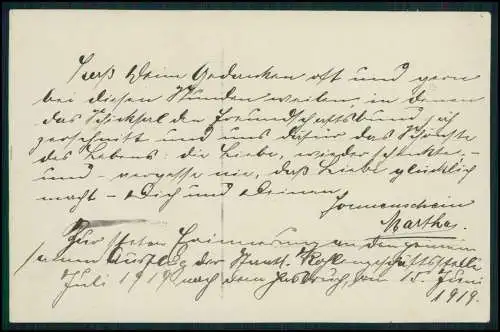 Laß Deine Gedanken oft und gern
bei diesen Stunden weilen, in denen
das Schicksal den Freundschaftsbund
zerschnitt und uns dafür das Schönste
des Lebens: die Liebe, wieder schenkte –
und – vergesse nie, daß Liebe glücklich
macht – Dich und Deinen
Sonnenschein
Martha.
Zur steten Erinnerung an den gemein
samen Ausflug der Staatl. Kohlengeschäftsstelle
nach dem am 15. Juni
Juli 1919
1919.